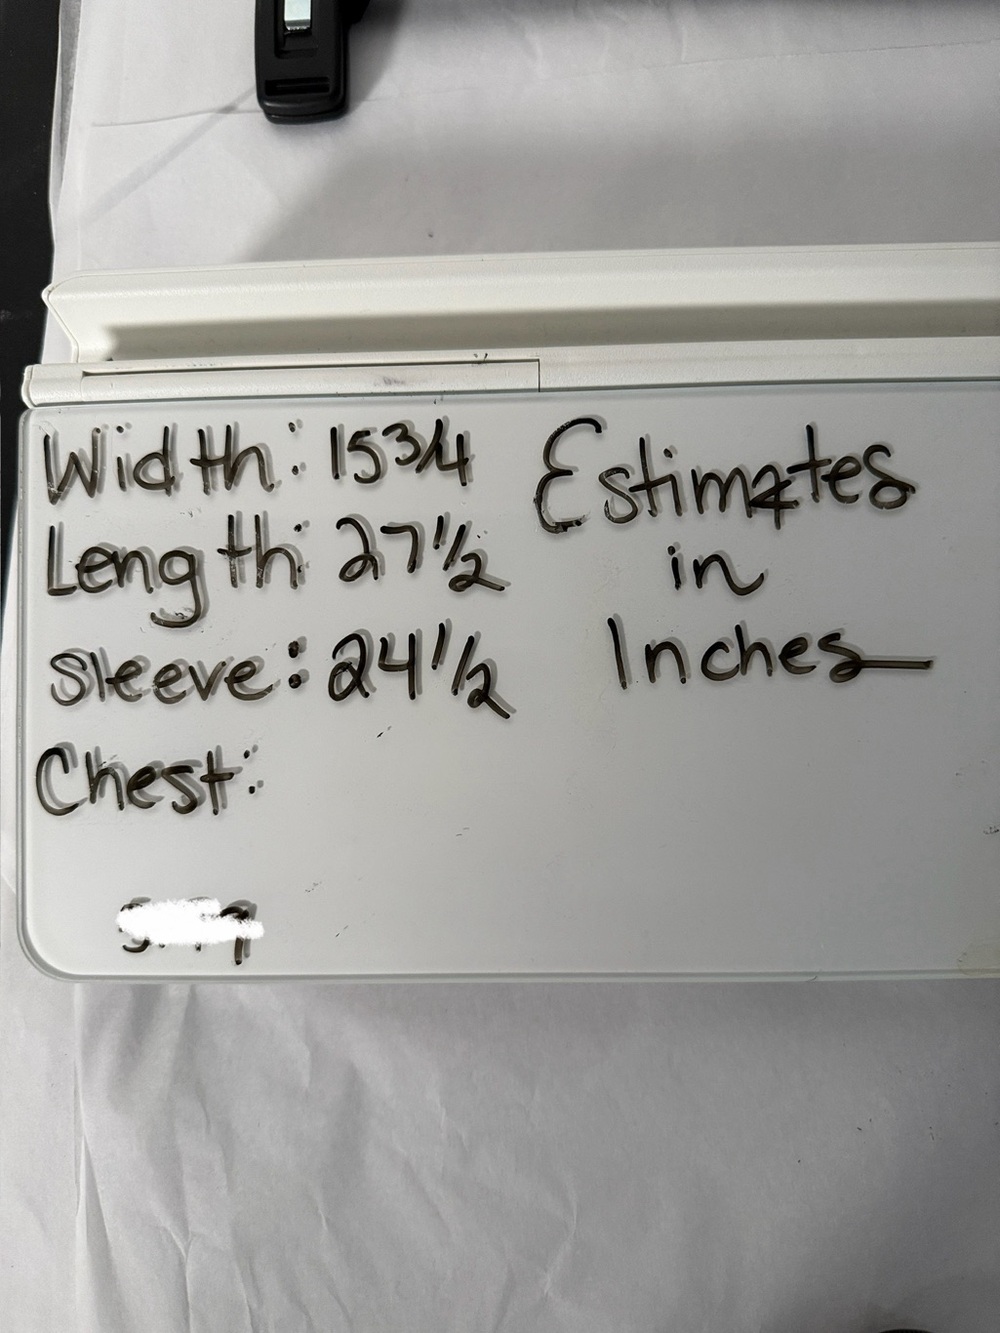 Width: 15 3/4
Length: 27 1/2
Sleeve: 24 1/2
Chest:
Estimates
in
Inches